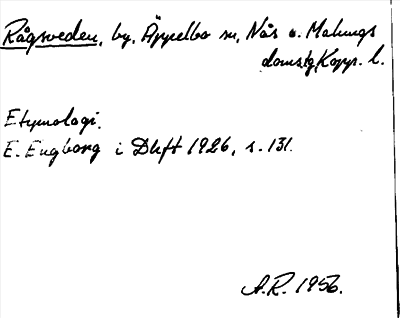 Rågsveden, by, Äppelbo sn, Nås o. Malungs
domsg, Kopp. l.
Etymologi.
E. Engborg i Dhft 1926, s. 131.
A.R. 1956.